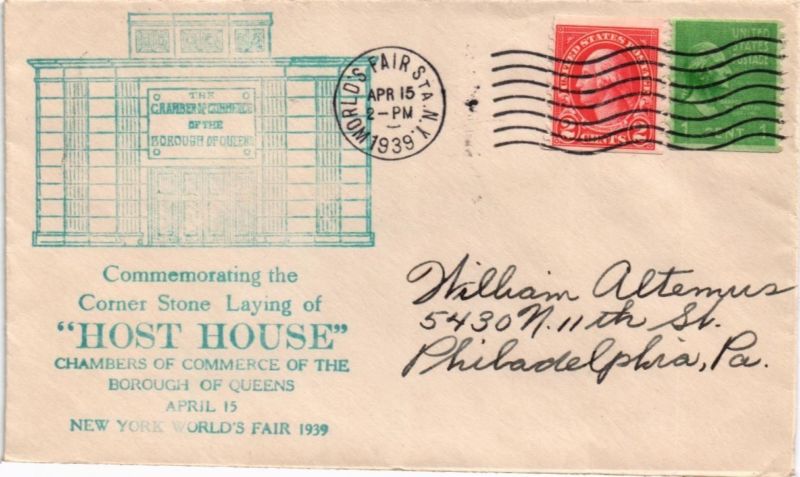 THE
CHAMBER OF COMMERCE
OF THE
BOROUGH OF QUEENS
WORLD'S FAIR STA. N.Y.
APR 15
2-PM
1939
UNITED STATES POSTAGE
2 CENTS 2
UNITED
STATES
POSTAGE
1 CENT 1
Commemorating the
Corner Stone Laying of
"HOST HOUSE"
CHAMBERS OF COMMERCE OF THE
BOROUGH OF QUEENS
APRIL 15
NEW YORK WORLD'S FAIR 1939
William Altemus
5430 N. 11th St.
Philadelphia, Pa.